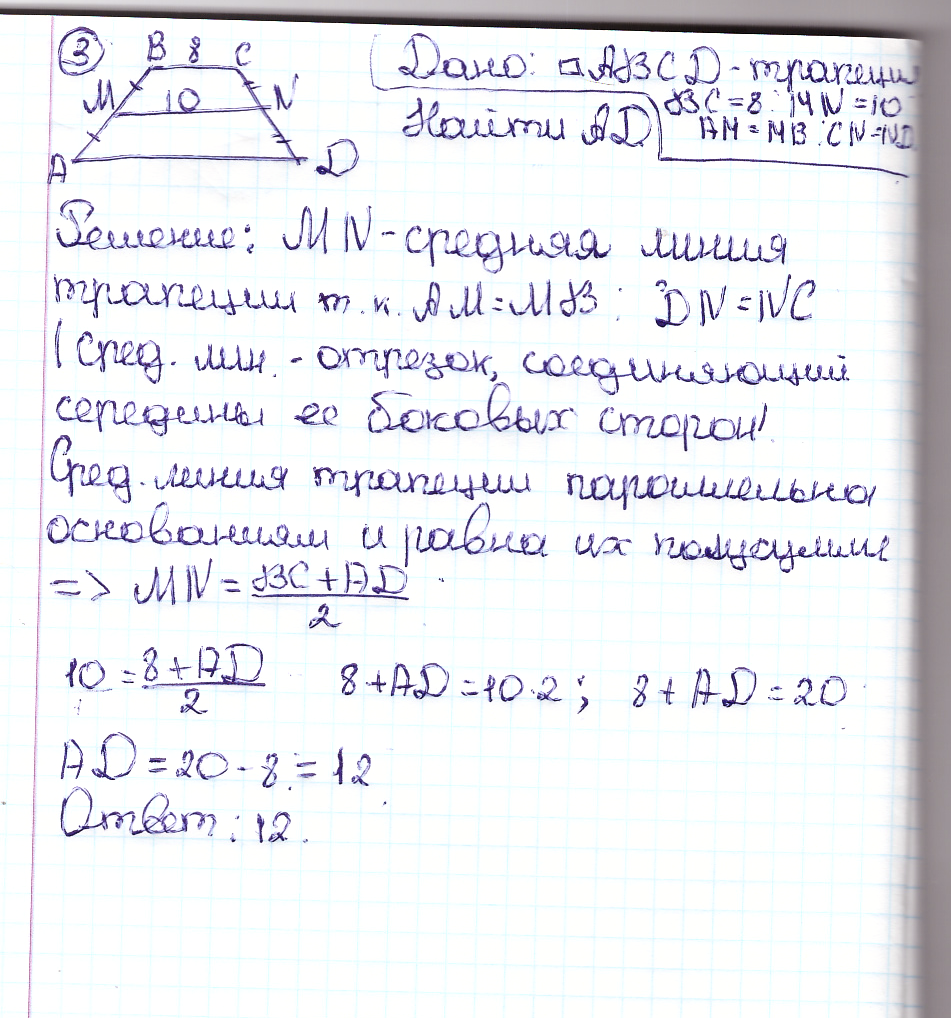 3
B 8 C
M 10 N
A D
Дано: □ ABCD - трапеция
BC = 8; MN = 10
Найти AD
AM = MB; CN = ND
Решение: MN - средняя линия
трапеции т.к. AM = MB; DN = NC
(Сред. лин. - отрезок, соединяющий
середины ее боковых сторон)
Сред. линия трапеции параллельна
основаниям и равна их полусумме
=> MN = (BC + AD)/2
10 = (8 + AD)/2 8 + AD = 10·2; 8 + AD = 20
AD = 20 - 8 = 12
Ответ: 12.